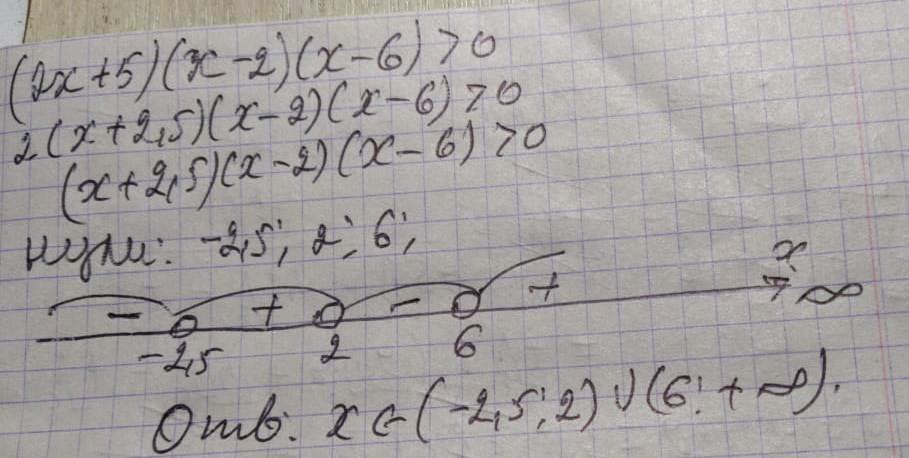 (2x+5)(x-2)(x-6)>0
2(x+2,5)(x-2)(x-6)>0
(x+2,5)(x-2)(x-6)>0
нули: -2,5; 2; 6;
x
- + - + ∞
-2,5 2 6
Отв: x∈(-2,5;2)∪(6;+∞).